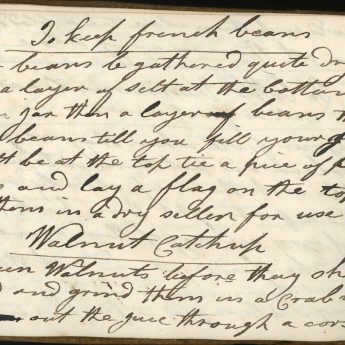 To keep french beans
beans be gathered quite dry
a layer of selt at the bottom
jar then a layer of beans th
beans till you fill your
be at the top tie a piece of p
and lay a flag on the top
them in a dry seller for use
Walnut Catchup
Walnuts before thay sh
and grind them in a Crab
out the juce through a cors